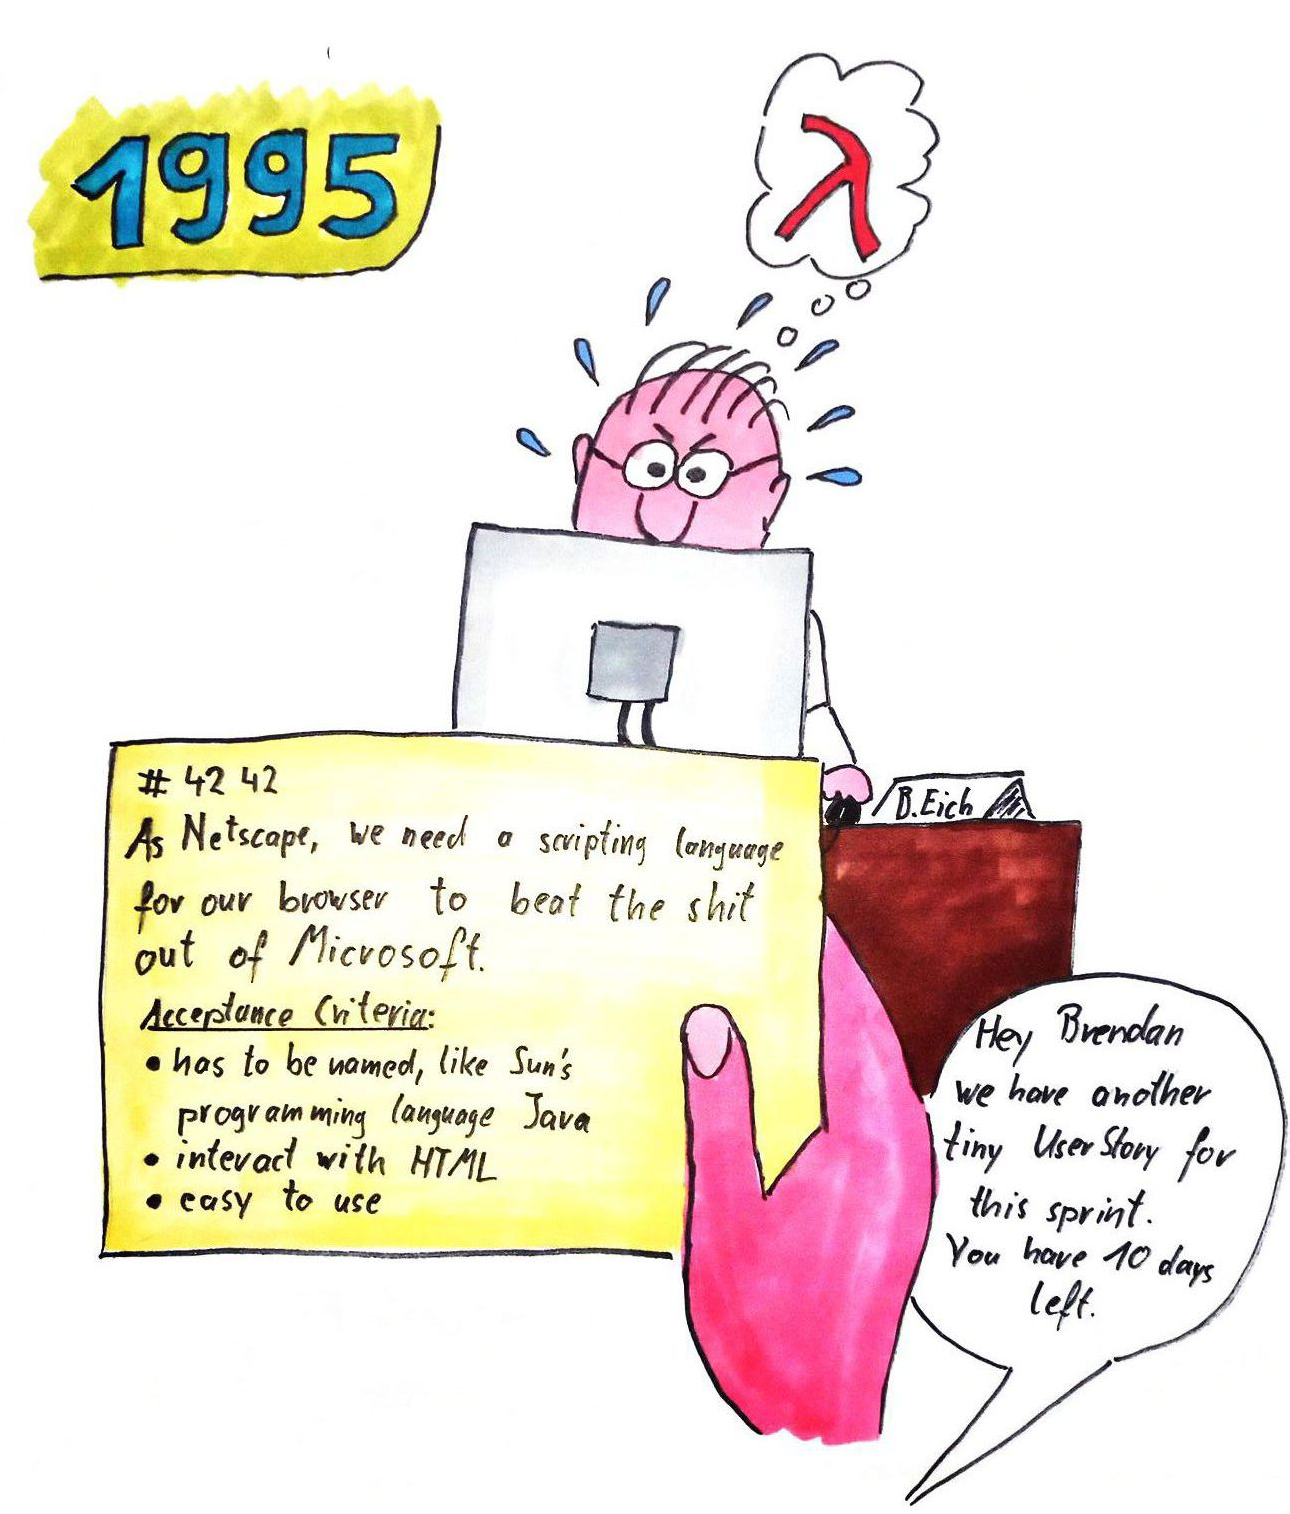 1995
λ
B.Eich
# 42 42
As Netscape, we need a scripting language
for our browser to beat the shit
out of Microsoft.
Acceptance Criteria:
• has to be named, like Sun's
programming language Java
• interact with HTML
• easy to use
Hey Brendan
we have another
tiny User Story for
this sprint.
You have 10 days
left.